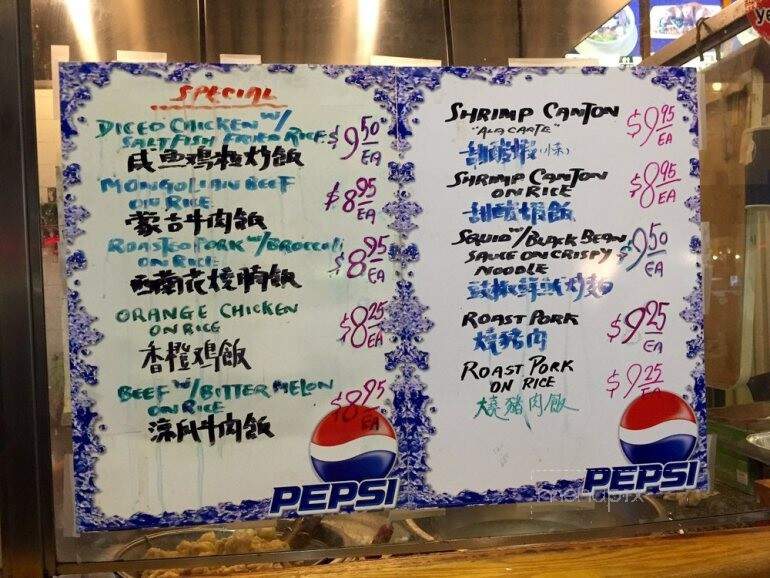 SPECIAL
DICED CHICKEN W/
SALTFISH FRIED RICE
$9.50
EA
咸鱼鸡粒炒飯
MONGOLIAN BEEF
ON RICE
$8.95
EA
蒙古牛肉飯
ROASTED PORK W/BROCCOLI
ON RICE
$8.95
EA
西蘭花燒腩飯
ORANGE CHICKEN
ON RICE
$8.25
EA
香橙鸡飯
BEEF W/BITTER MELON
ON RICE
$8.95
凉瓜牛肉飯
PEPSI
SHRIMP CANTON
"ALA CARTE"
$9.95
EA
甜酸蝦
SHRIMP CANTON
ON RICE
$8.95
EA
甜酸蝦飯
SQUID W/BLACK BEAN
SAUCE ON CRISPY
NOODLE
$9.50
EA
豉椒鲜魷炒麵
ROAST PORK
$9.25
EA
燒豬肉
ROAST PORK
ON RICE
$9.25
EA
燒豬肉飯
PEPSI